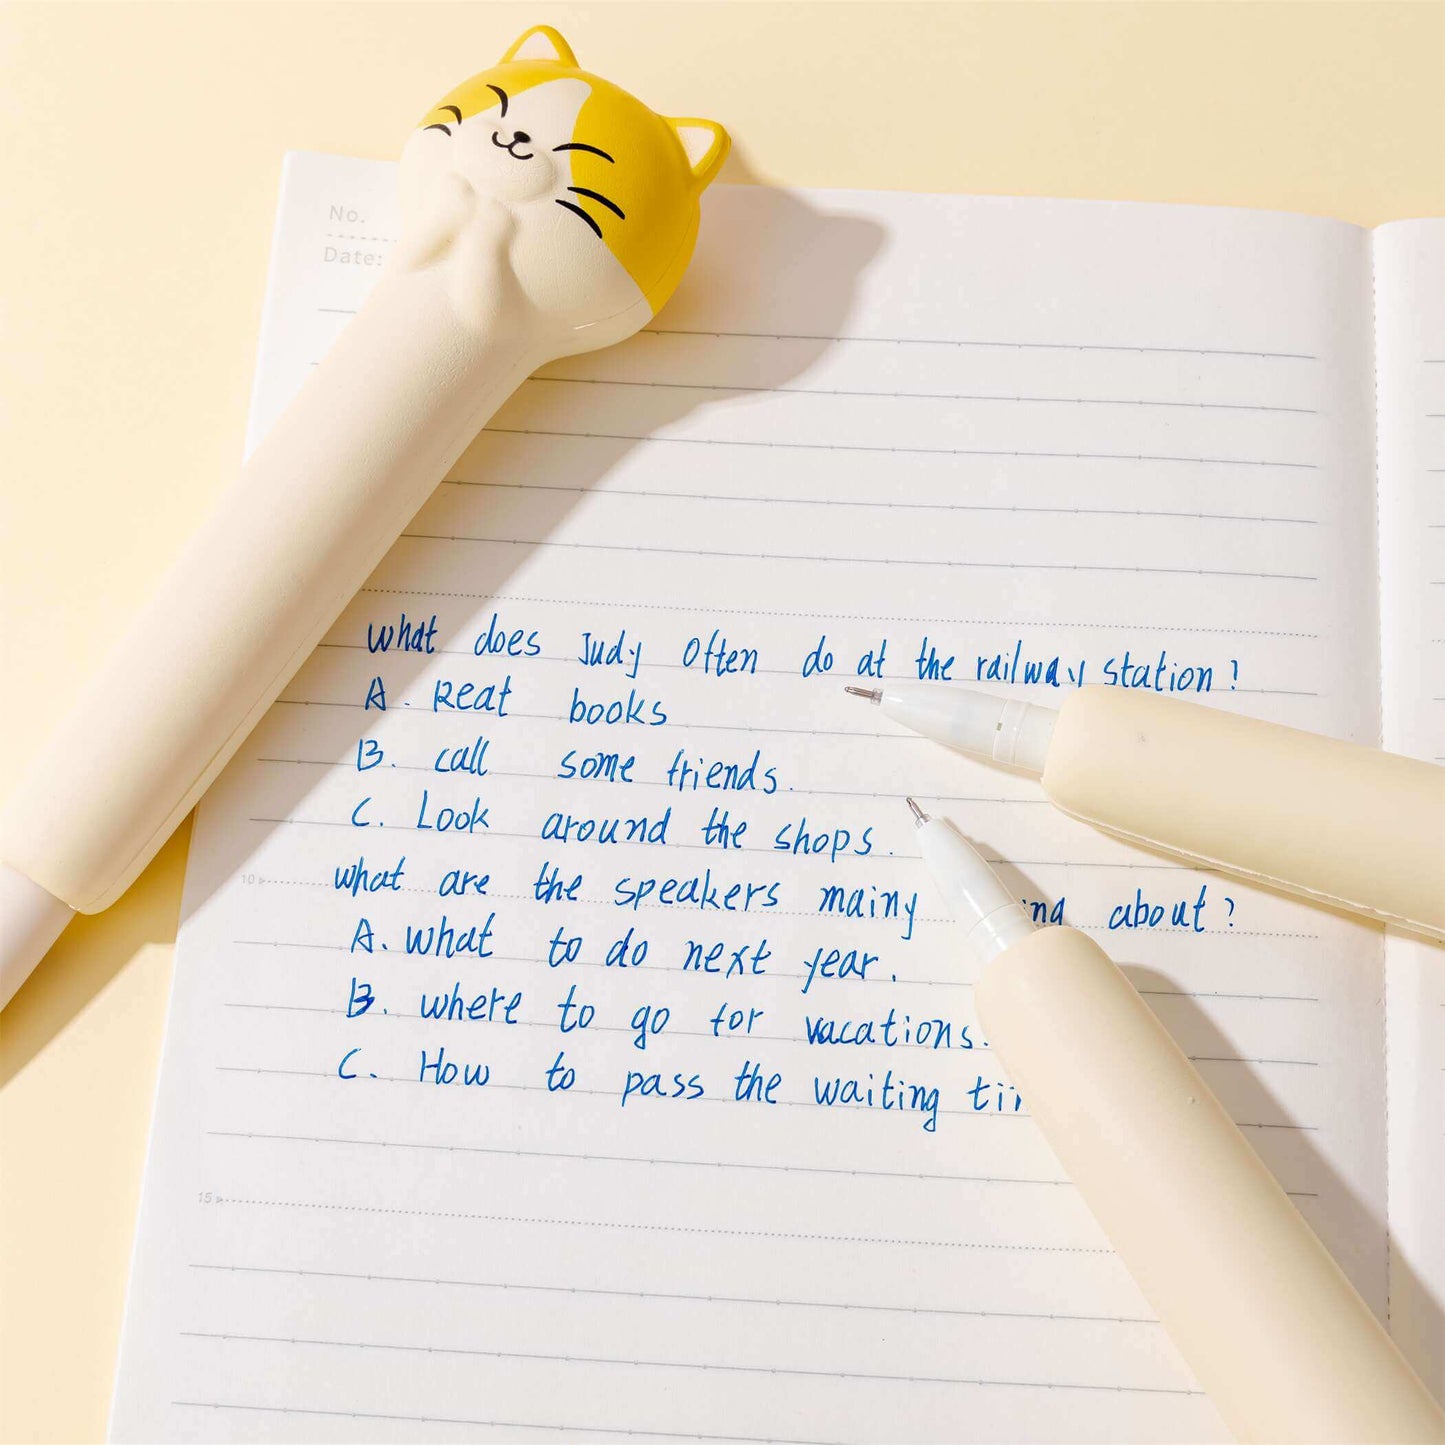 No.
Date:
What does Judy Often do at the railway station?
A. Reat books
B. call some friends.
C. Look around the shops.
10
what are the speakers mainy ing about?
A. what to do next year.
B. where to go for vacations.
C. How to pass the waiting
15